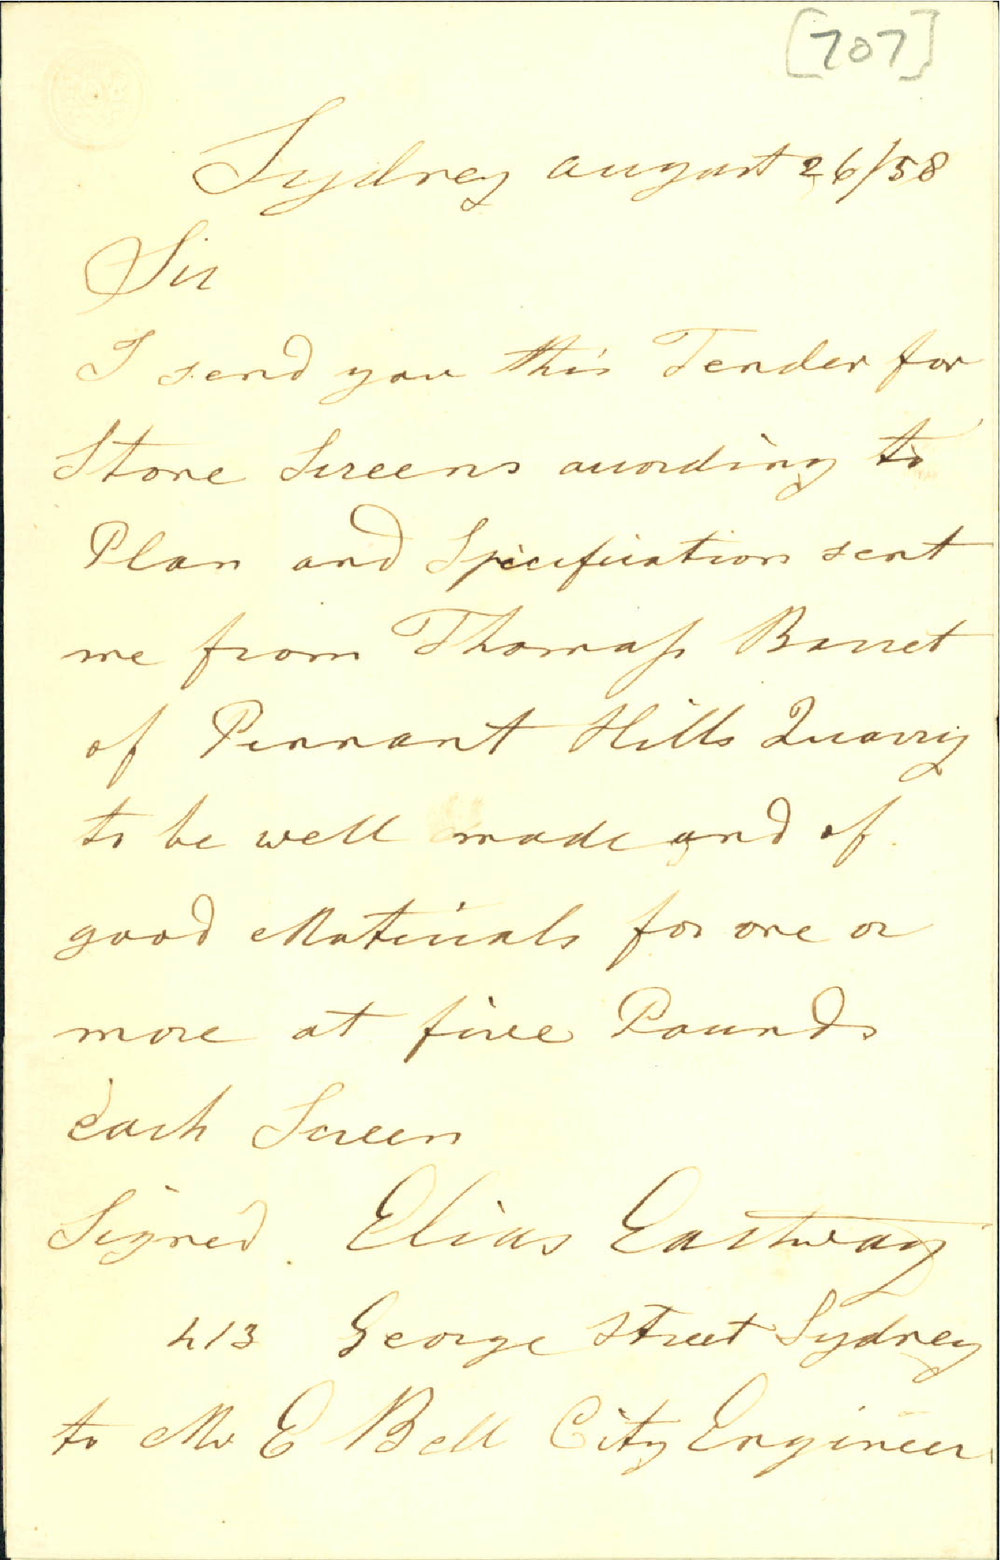 [707]
Sydney august 26/58
Sir
I send you this Tender for
Stone Screens according to
Plan and Specification sent
me from Thomass Barret
of Pennant Hills Quarry
to be well made and of
good Materials for one or
more at five Pounds
each Screen
Signed Elias Eastway
413 George Street Sydney
to Mr E Bell City Engineer